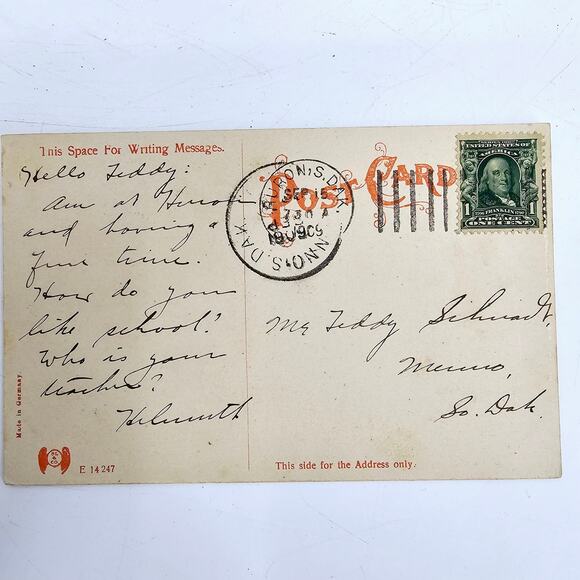 This Space For Writing Messages.
Hello Teddy:
Am at Huron
and having a
fine time.
How do you
like school?
Who is your
teacher?
Helmuth
Made in Germany
E 14247
POST CARD
HURON, S. DAK.
SEP 15
730 A
1909
S. DAK.
UNITED STATES OF
AMERICA
1 1
FRANKLIN
POSTAGE ONE CENT
Mr Teddy
Menno,
So. Dak.
This side for the Address only.